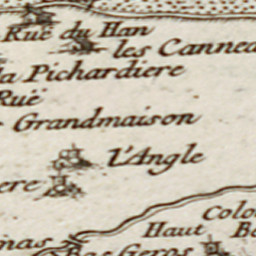 Ruë du Han
les Canne
la Pichardiere
Ruë
Grandmaison
L'Angle
ere
Colo
Haut
nas
Bas Geros